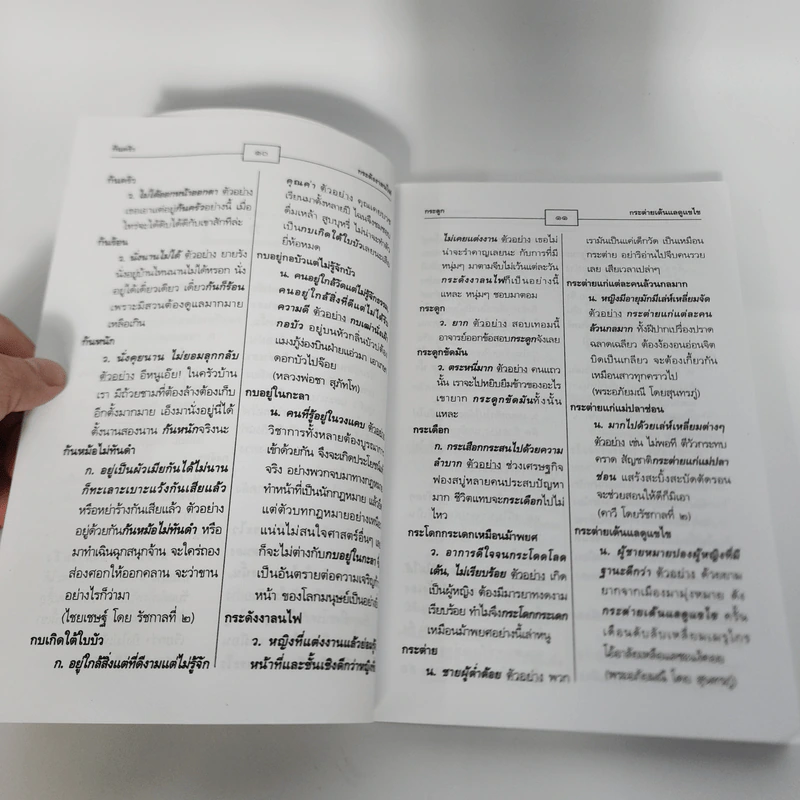 ก้นครัว
๑๐
กันครัว
ว. ไม่ได้ออกหน้าออกตา ตัวอย่าง
เธอเอาแต่อยู่ก้นครัวอย่างนี้ เมื่อ
ไหร่จะได้ดิบได้ดีกับเขาสักทีล่ะ
ก้นร้อน
ว. นั่งนานไม่ได้ ตัวอย่าง ยายรัง
นั่งอยู่บ้านไหนนานไม่ได้หรอก นั่ง
อยู่ได้เดี๋ยวเดียว เดี๋ยวก้นก็ร้อน
เพราะมีสวนต้องดูแลมากมาย
เหลือเกิน
ก้นหนัก
ว. นั่งคุยนาน ไม่ยอมลุกกลับ
ตัวอย่าง อีหนูเอ๊ย! ในครัวบ้าน
เรา มีถ้วยชามที่ต้องล้างต้องเก็บ
อีกตั้งมากมาย เอ็งมานั่งอยู่นี่ได้
ตั้งนานสองนาน ก้นหนักจริงนะ
ก้นหม้อไม่ทันดำ
ก. อยู่เป็นผัวเมียกันได้ไม่นาน
ก็ทะเลาะเบาะแว้งกันเสียแล้ว
หรือหย่าร้างกันเสียแล้ว ตัวอย่าง
อยู่ด้วยกันก้นหม้อไม่ทันดำ หรือ
มาทำเฉินฉุกสนุกจ้าน จะใคร่ถอง
ส่องศอกให้ออกคลาน จะว่าขาน
อย่างไรก็ว่ามา
(ไชยเชษฐ์ โดย รัชกาลที่ ๒)
กบเกิดใต้ใบบัว
ก. อยู่ใกล้สิ่งแต่ที่ดีงามแต่ไม่รู้จัก
คุณค่า ตัวอย่าง
เป็นกบเกิดใต้ใบบัว
ยี่ห้อหมด
กบอยู่กอบัวแต่ไม่รู้จักบัว
น. คนอยู่ใกล้วัดแต่ไม่รู้จัก
คนอยู่ใกล้สิ่งที่ดีแต่ไม่ได้
ความดี ตัวอย่าง กบเฒ่านั่ง
กอบัว อยู่บนหัวกลิ่นบัวบ่
แมงภู่ง่องบินฝ่ายแอ่วมา เอา
ดอกบัวไปจ้อย
(หลวงพ่อชา สุภัทโท)
กบอยู่ในกะลา
น. คนที่รู้อยู่ในวงแคบ ตัวอ
วิชาการทั้งหลายต้องบูรณาการ
เข้าด้วยกัน จึงจะเกิดประโยชน์
จริง อย่างพวกจบมาทางกฎหมาย
ทำหน้าที่เป็นนักกฎหมาย
แต่ตัวบทกฎหมายอย่างเ
แน่นไม่สนใจศาสตร์อื่นๆ
ก็จะไม่ต่างกับกบอยู่ในกะลา
เป็นอันตรายต่อความเจริญก้าว
หน้า ของโลกมนุษย์เป็นอย่าง
กระดังงาลนไฟ
ว. หญิงที่แต่งงานแล้ว
หน้าที่และชั้นเชิงดีกว่าหญิง
กระดูก
๑๑
กระต่ายเต้นแลดูแขไข
ไม่เคยแต่งงาน ตัวอย่าง เธอไม่
น่าจะรำคาญเลยนะ กับการที่มี
หนุ่มๆ มาตามจีบไม่เว้นแต่ละวัน
กระดังงาลนไฟก็เป็นอย่างนี้
แหละ หนุ่มๆ ชอบมาตอม
กระดูก
ว. ยาก ตัวอย่าง สอบเทอมนี้
อาจารย์ออกข้อสอบกระดูกจังเลย
กระดูกขัดมัน
ว. ตระหนี่มาก ตัวอย่าง คนแถว
นั้น เราจะไปหยิบยืมข้าวของอะไร
เขายาก กระดูกขัดมันทั้งนั้น
แหละ
กระเดือก
ก. กระเสือกกระสนไปด้วยความ
ลำบาก ตัวอย่าง ช่วงเศรษฐกิจ
ฟองสบู่หลายคนประสบปัญหา
มาก ชีวิตแทบจะกระเดือกไปไม่
ไหว
กระโดกกระเดกเหมือนม้าพยศ
ว. อาการดีใจจนกระโดดโลด
เต้น, ไม่เรียบร้อย ตัวอย่าง เกิด
เป็นผู้หญิง ต้องมีมารยาทงดงาม
เรียบร้อย ทำไมจึงกระโดกกระเดก
เหมือนม้าพยศอย่างนี้เล่าหนู
กระต่าย
น. ชายผู้ต่ำต้อย ตัวอย่าง พวก
เรามันเป็นแค่เด็กวัด เป็นเหมือน
กระต่าย อย่าริอ่านไปจีบคนรวย
เลย เสียเวลาเปล่าๆ
กระต่ายแก่แต่ละคนล้วนกลมาก
น. หญิงมีอายุมักมีเล่ห์เหลี่ยมจัด
ตัวอย่าง กระต่ายแก่แต่ละคน
ล้วนกลมาก ทั้งฝีปากเปรื่องปราด
ฉลาดเฉลียว ต้องง้องอนอ่อนจิต
บิดเป็นเกลียว จะต้องเกี้ยวกัน
เหมือนสาวทุกคราวไป
(พระอภัยมณี โดยสุนทรภู่)
กระต่ายแก่แม่ปลาช่อน
น. มากไปด้วยเล่ห์เหลี่ยมต่างๆ
ตัวอย่าง เช่น ไม่พอที ตีวัวกระทบ
คราด สัญชาติกระต่ายแก่แม่ปลา
ช่อน แสร้งสะบิ้งสะบัดตัดรอน
จะช่วยสอนให้ดีก็มิเอา
(คาวี โดยรัชกาลที่ ๒)
กระต่ายเต้นแลดูแขไข
น. ผู้ชายหมายปองผู้หญิงที่มี
ฐานะดีกว่า ตัวอย่าง ด้วยยาม
ยากจากเมืองมามุ่งหมาย ดัง
กระต่ายเต้นแลดูแขไข ครั้น
เดือนดับลับเหลี่ยมเมรุไกร
(พระอภัยมณี โดย สุนทรภู่)